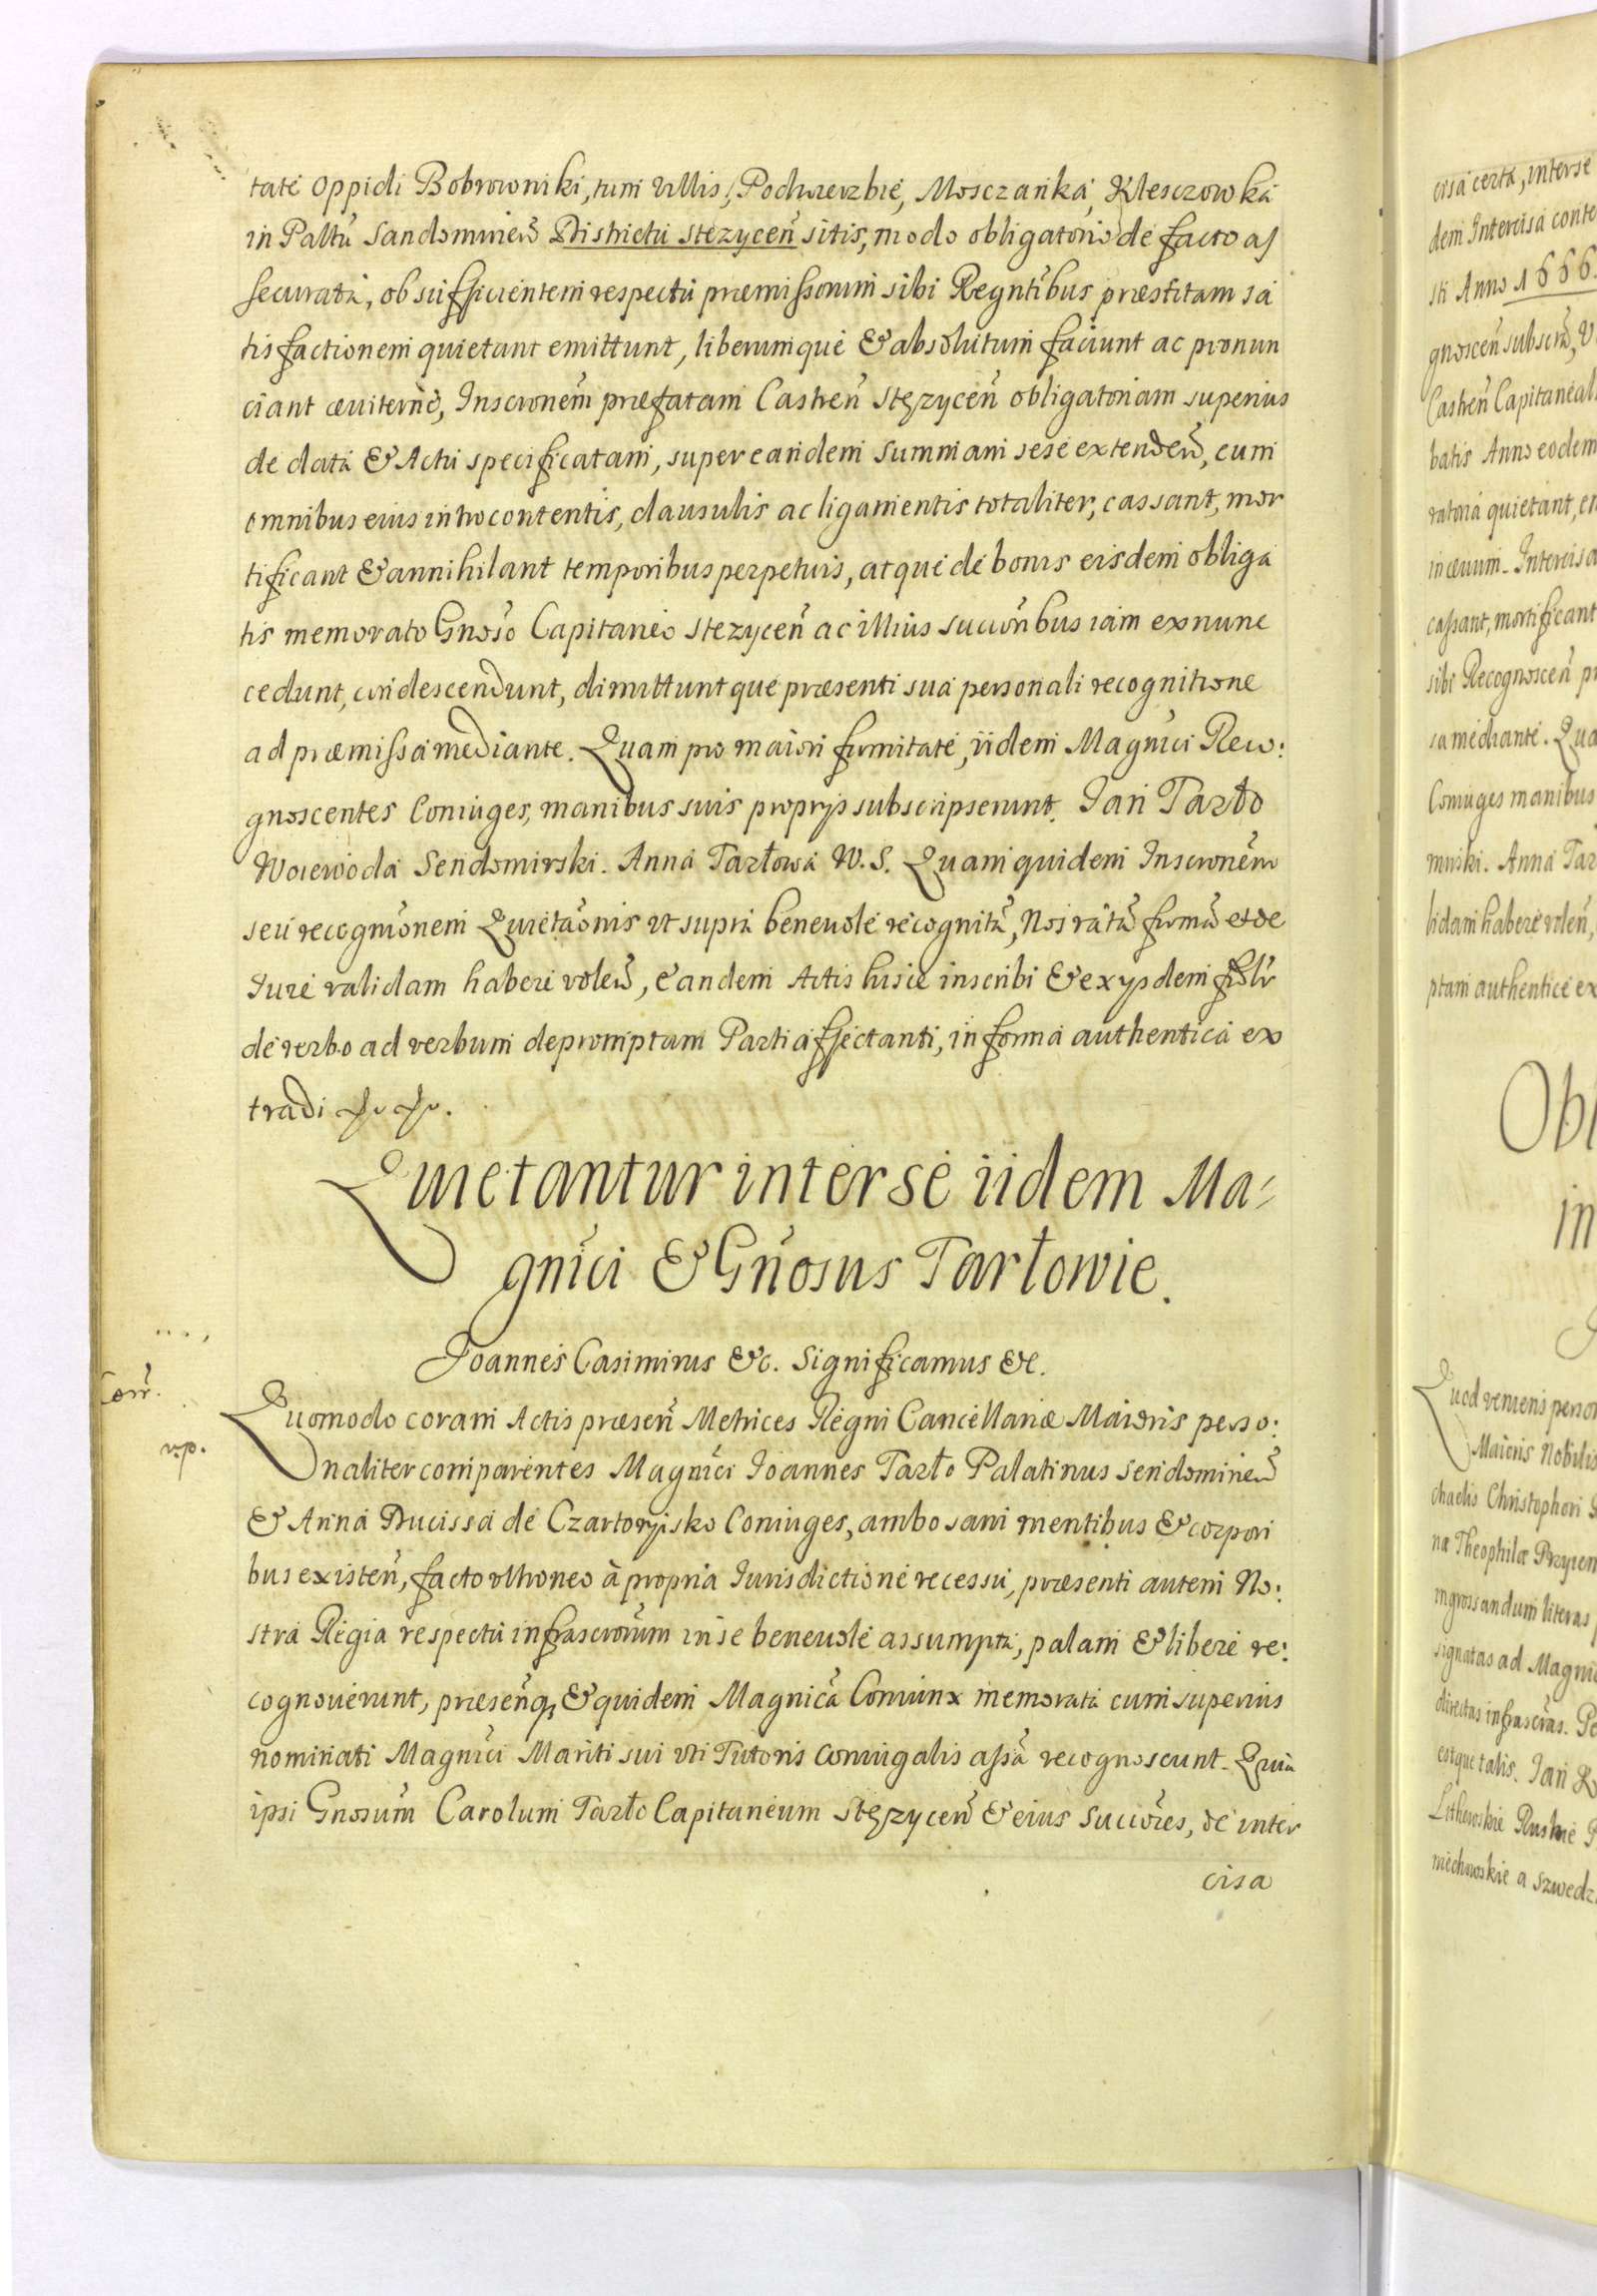 tate Oppidi Bobrowniki, tum Villis, Podwierzbie, Mosczanka, Klesczowka
in Paltũ Sandomirieñ Districtu Stezyceñ sitis, modo obligatorio de facto as
securata, ob sufficientem respectu præmissorum sibi Regntĩbus præstitam sa
tisfactionem quietant emittunt, liberumque & absolutum faciunt ac pronun
ciant æuiterne, Inscronẽm præfatam Castreñ Stęzyceñ obligatoriam superius
de data & Actu specificatam, super eandem summam sese extendeñ, cum
omnibus eius introcontentis, clausulis ac ligamentis totaliter, cassant, mor
tificant & annihilant temporibus perpetuis, atque de bonis eisdem obliga
tis memorato Gnoso Capitaneo Stezyceñ ac illius succoñbus iam ex nunc
cedunt, condescendunt, dimittuntque præsenti sua personali recognitione
ad præmissa mediante. Quam pro maiori firmitate, iidem Magnici Reco:
gnoscentes Coniuges, manibus suis proprys subscripserunt. Jan Tarło
Woiewoda Sendomirski. Anna Tarłowa W. S. Quam quidem Inscronẽm
seu recognionem Quietãonis vt supra beneuole recognitã, Nos ratã firmã et de
Jure validam habere voleñ, eandem Actis hisce inscribi & ex ysdem
de verbo ad verbum depromptam Parti affectanti, in forma authentica ex
tradi
Quietantur inter se iidem Ma=
gnici & Gnosus Tarłowie.
Joannes Casimirus &c. Significamus &c.
Corr.
Quomodo coram Actis præseñ Metrices Regni Cancellariæ Maioris perso:
naliter comparentes Magnici Joannes Tarło Palatinus Sendomirieñ
& Anna Ducissa de Czartoryisko Coniuges, ambo sani mentibus & corpori
bus existeñ, facto vltroneo à propria Jurisdictione recessu, præsenti autem No:
stra Regia respectu infrascrorum in se beneuole assumpta, palam & libere re:
cognouerunt, præsenq, & quidem Magnica Coniunx memorata cum superius
nominati Magnici Mariti sui vti Tutoris Coniugalis assã recognoscunt. Quia
ipsi Gnosum Carolum Tarło Capitaneum Stęzyceñ & eius Succores, de inter
cisa
cisa certa, inter se
dem Intercisa conte
sti Anno 1666.
Castreñ Capitaneal
batis Anno eodem
ratoria quietant,
in æuum. Intercisa
cassant, mortificant
sibi Recognosceñ
sa mediante.
Coniuges manibus
Anna Tar
lidam habere voleñ,
ptam authentice ex
Obl
in
Quod veniens person
Maioris Nobilis
chaelis Christophori
næ Theophilæ Przyiem
ingrossandum literas
signatas ad Magni
directas infrascras.
estque talis. Jan
Ruskie
a Szwedz